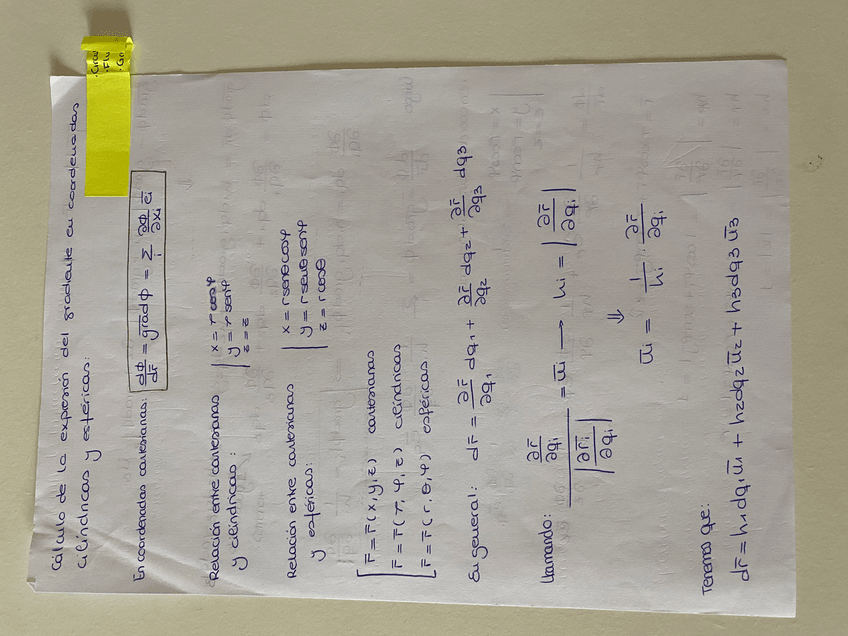 Cálculo de la expresión del gradiente en coordenadas
cilíndricas y esféricas:
En coordenadas cartesianas: dΦ/dr̄ = grad Φ = Σᵢ ∂Φ/∂xᵢ ēᵢ
Relación entre cartesianas
y cilíndricas:
x = r cosφ
y = r senφ
z = z
Relación entre cartesianas
y esféricas:
x = r senθ cosφ
y = r senθ senφ
z = r cosθ
r̄ = r̄ (x, y, z) cartesianas
r̄ = r̄ (r, φ, z) cilíndricas
r̄ = r̄ (r, θ, φ) esféricas
En general: dr̄ = ∂r̄/∂q₁ dq₁ + ∂r̄/∂q₂ dq₂ + ∂r̄/∂q₃ dq₃
Llamando: (∂r̄/∂qᵢ)/|∂r̄ᵢ/∂qᵢ| = ūᵢ → hᵢ = |∂r̄/∂qᵢ|
⇓
ūᵢ = 1/hᵢ ∂r̄/∂qᵢ
Tenemos que:
dr̄ = h₁dq₁ū₁ + h₂dq₂ū₂ + h₃dq₃ū₃